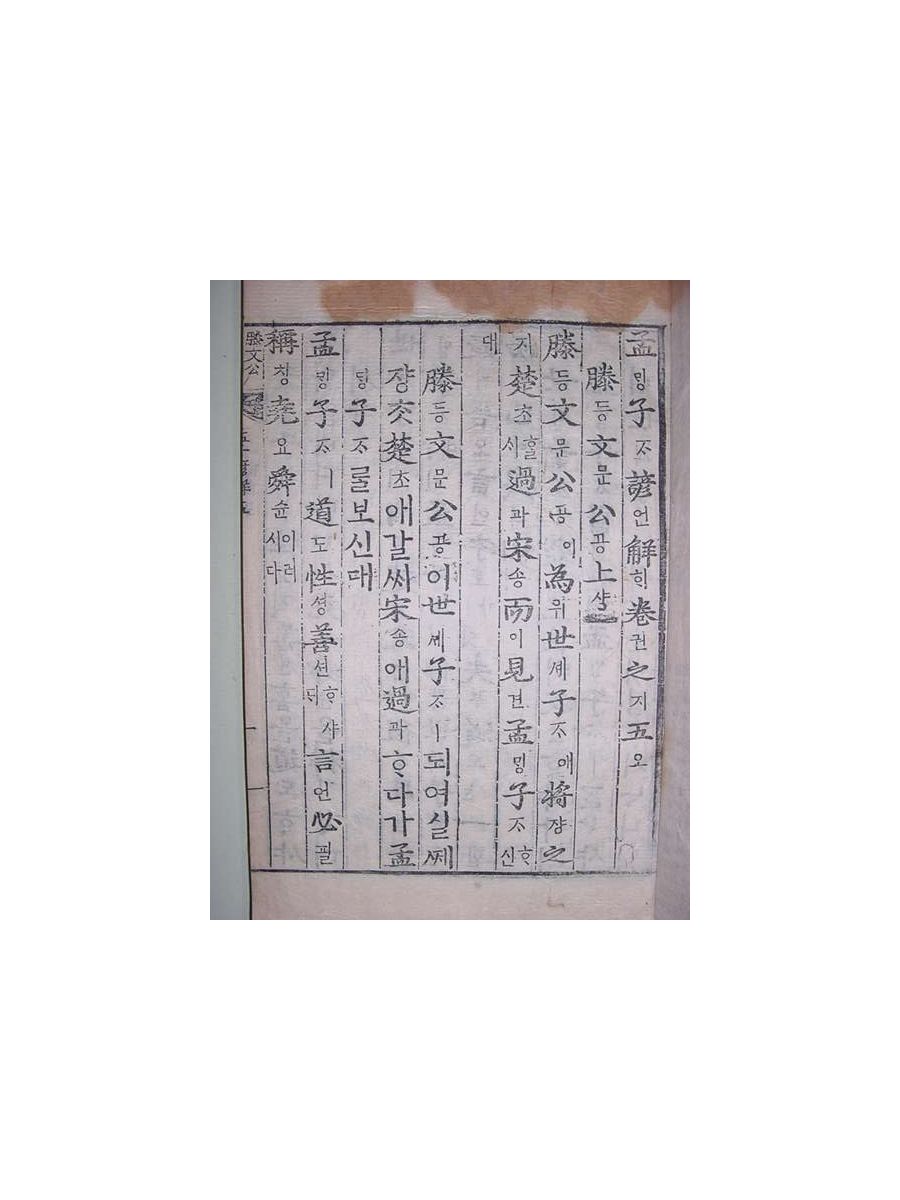 孟ᄆᆡᆼ子ᄌᆞ諺언解ᄒᆡ卷권之지五오
滕등文문公공上샹
滕등文문公공이為위世셰子ᄌᆞ애將쟝之
지楚초ᄒᆞᆯ시過과宋송而이見견孟ᄆᆡᆼ子ᄌᆞᄒᆞ신
대
滕등文문公공이世셰子ᄌᆞㅣ되여실쩨
쟝ᄎᆞᆺ楚초애갈ᄊᆡ宋송애過과ᄒᆞ다가孟
ᄆᆡᆼ子ᄌᆞᄅᆞᆯ보신대
孟ᄆᆡᆼ子ᄌᆞㅣ道도性셩善션ᄒᆞ샤ᄃᆡ言언必필
稱칭堯요舜슌이러시다
滕文公
一